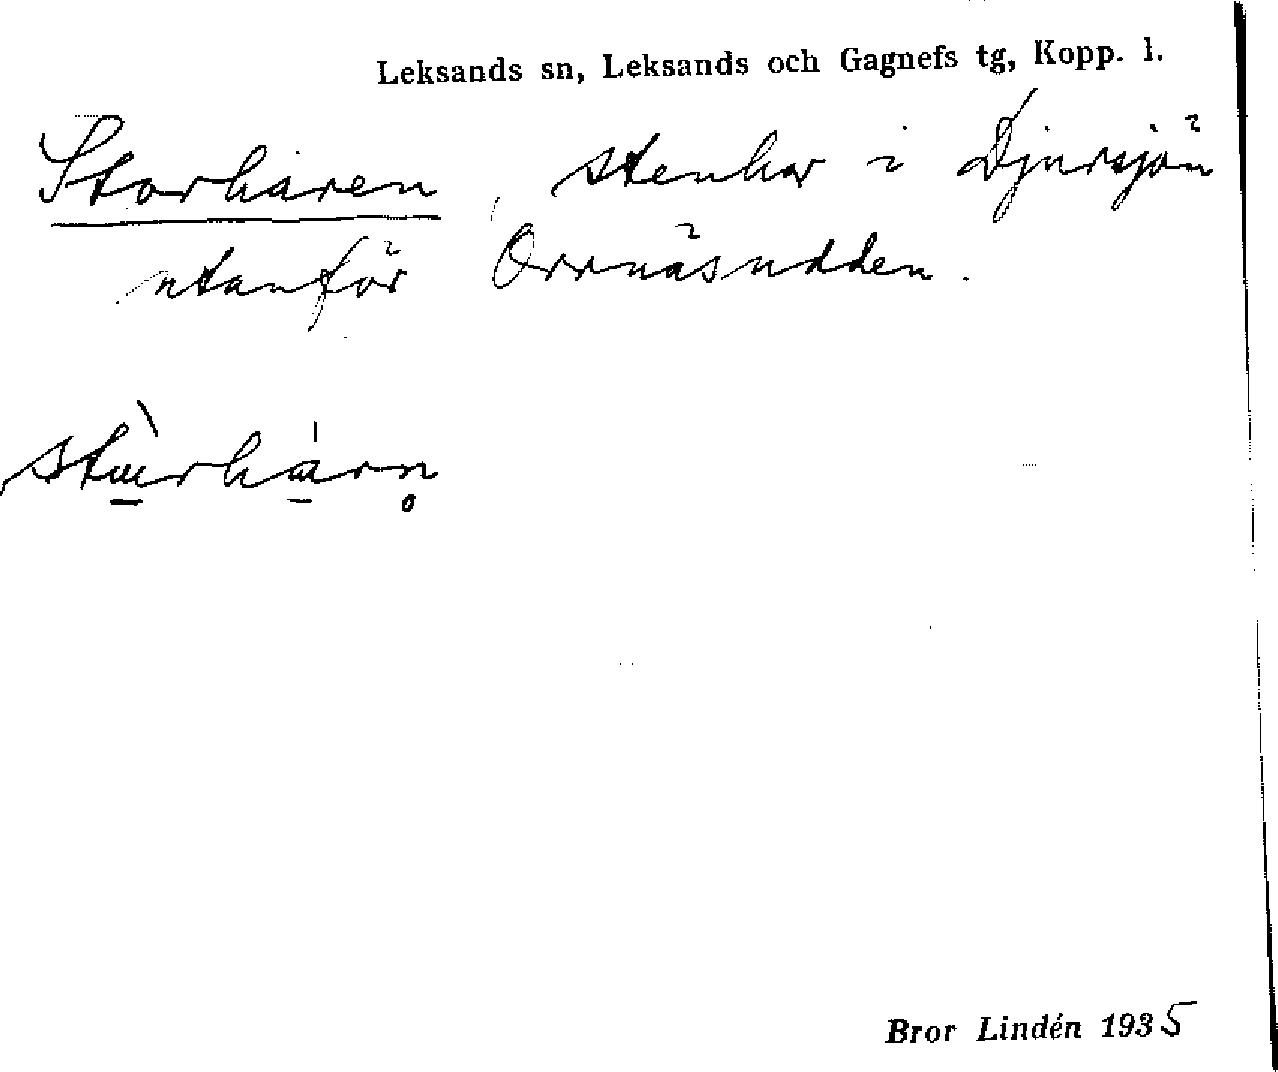 Leksands sn, Leksands och Gagnefs tg, Kopp. l.
Storharen, stenhar i Djursjön
utanför Orrnäsudden.
Bror Lindén 1935